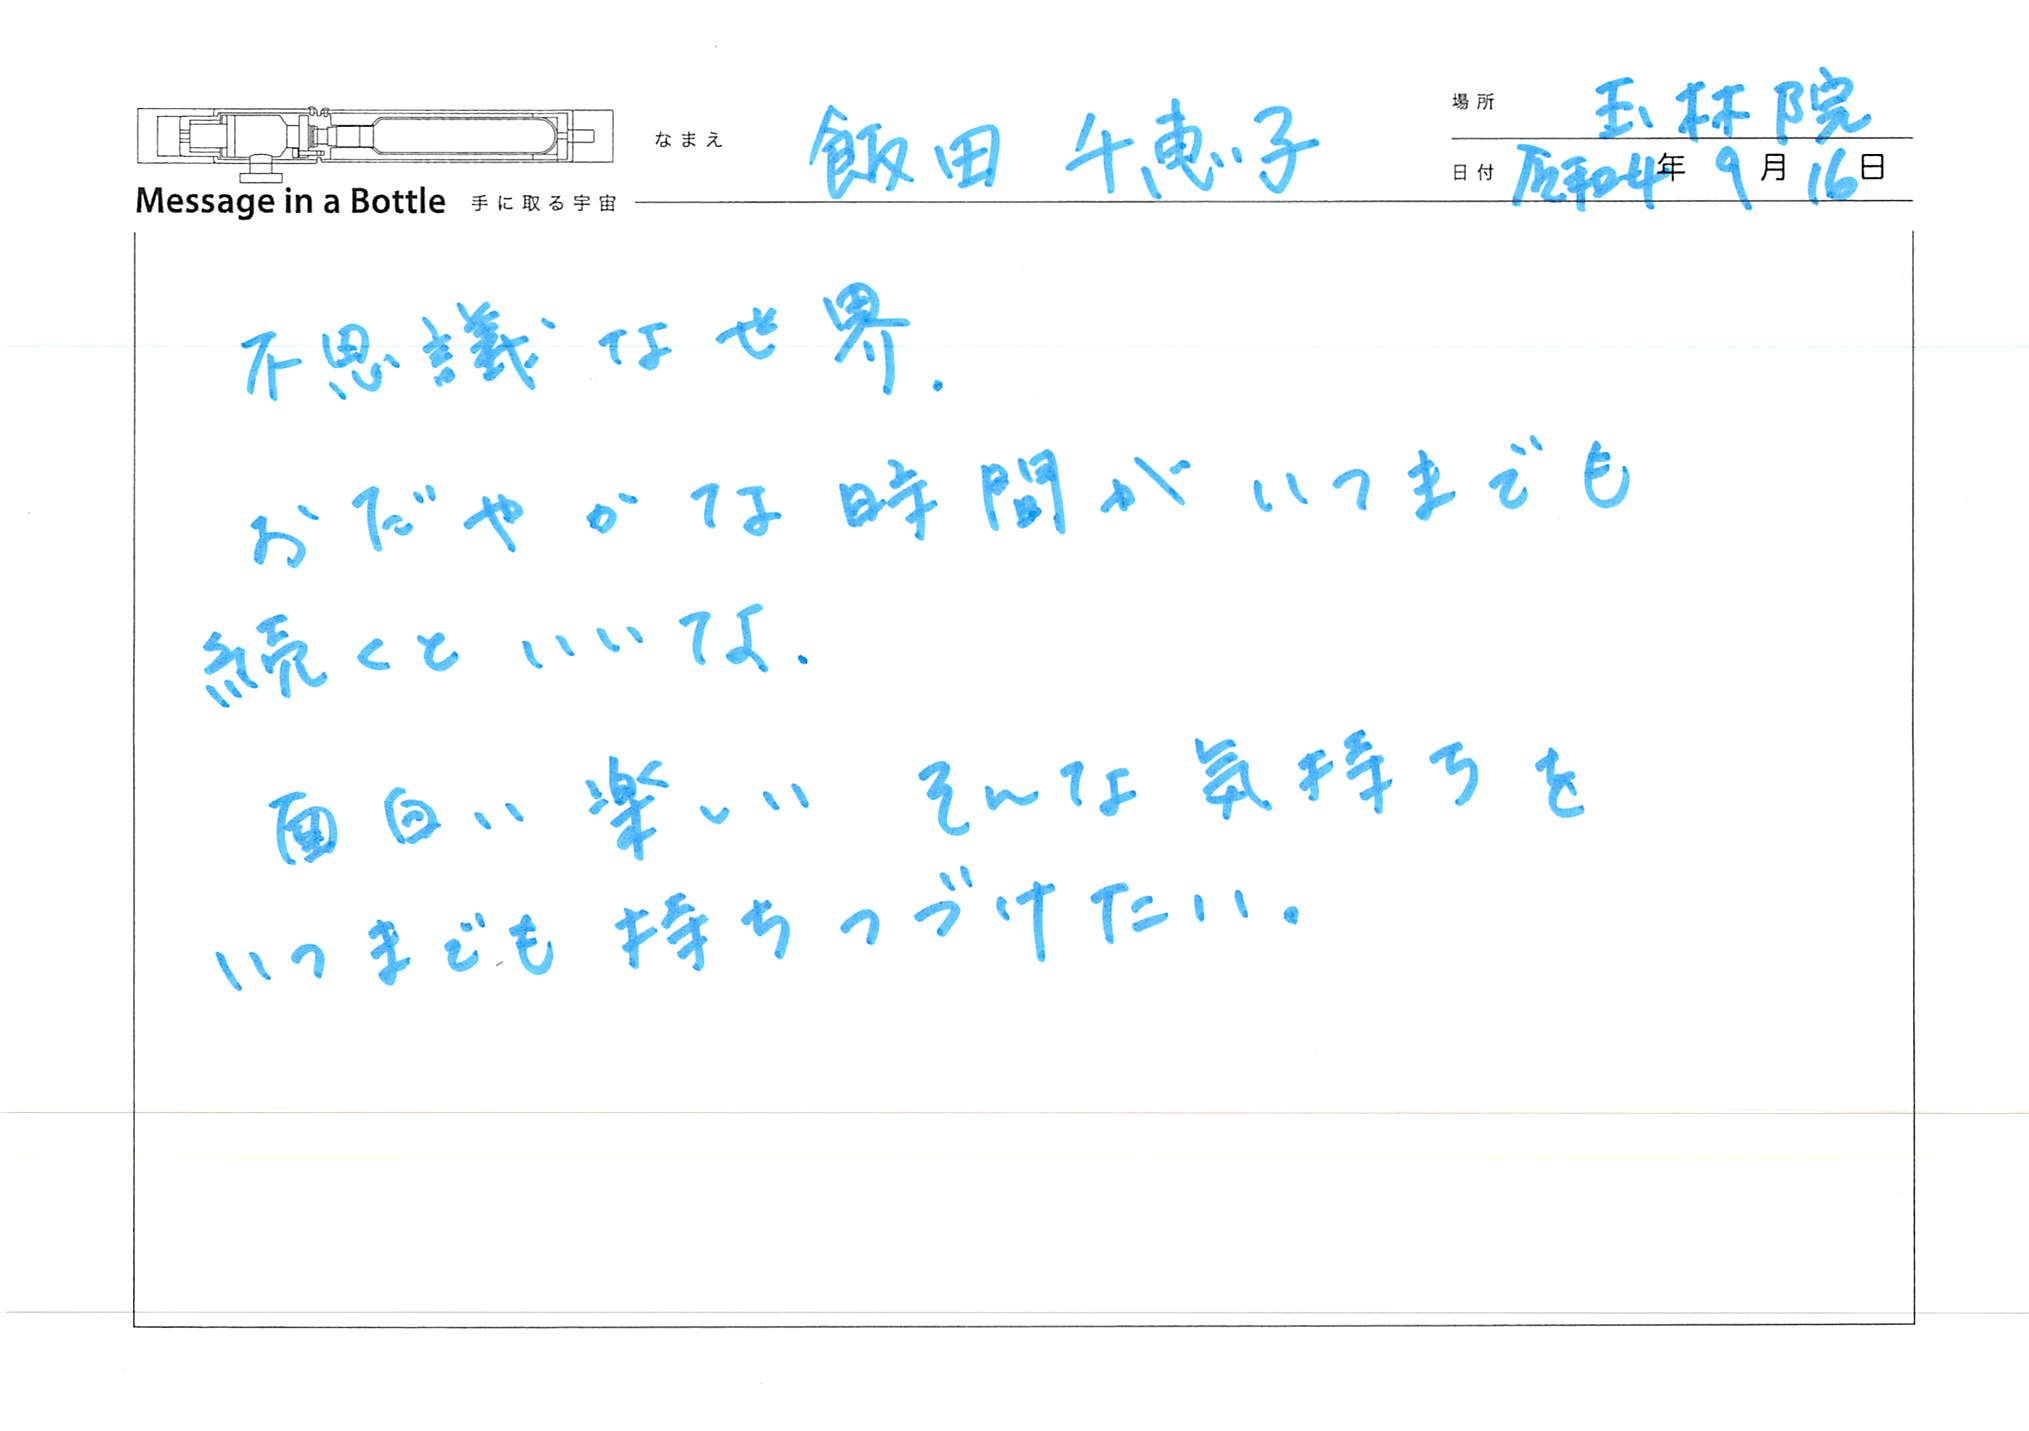 場所 玉林院
なまえ 飯田 千恵子
日付 4年 9月 16日
Message in a Bottle 手に取る宇宙
不思議な世界.
おだやかな時間がいつまでも
続くといいな.
面白い 楽しい そんな気持ちを
いつまでも持ちつづけたい.